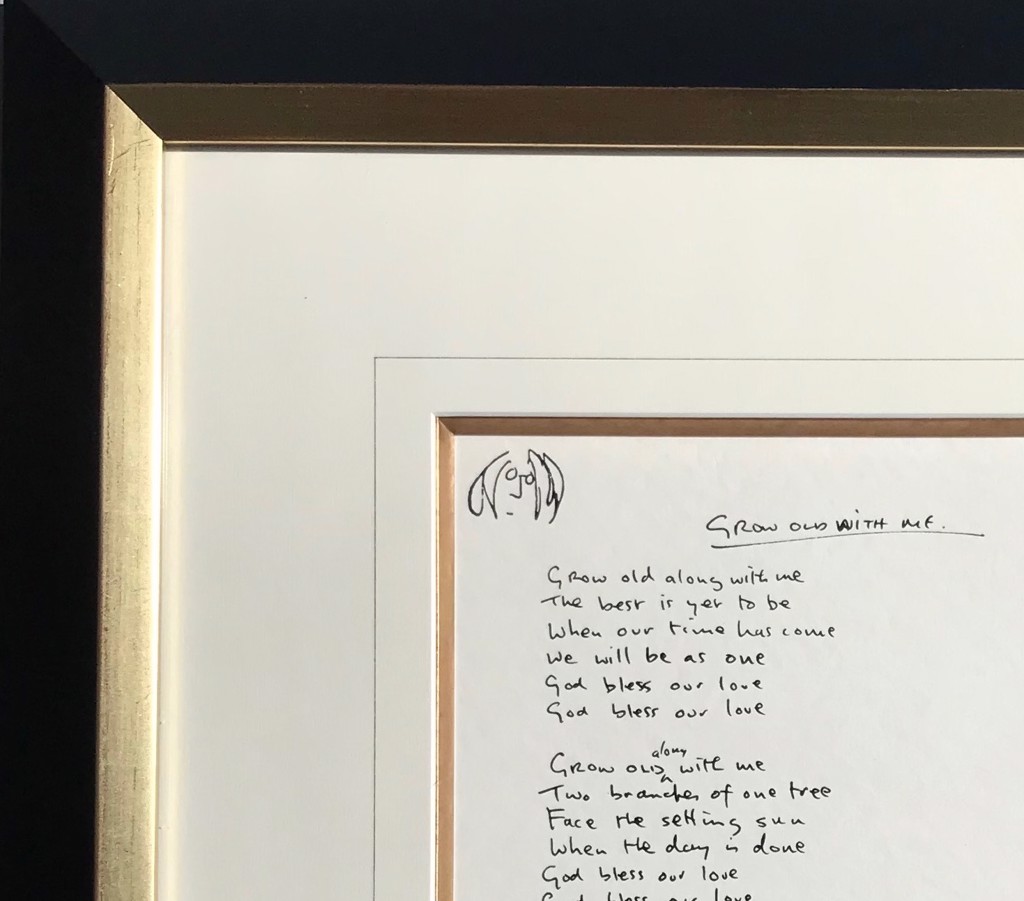 GROW OLD WITH ME.
Grow old along with me
The best is yet to be
When our time has come
We will be as one
God bless our love
God bless our love
along
GROW OLD with me
Two branches of one tree
Face the setting sun
When the day is done
God bless our love
God bless our love